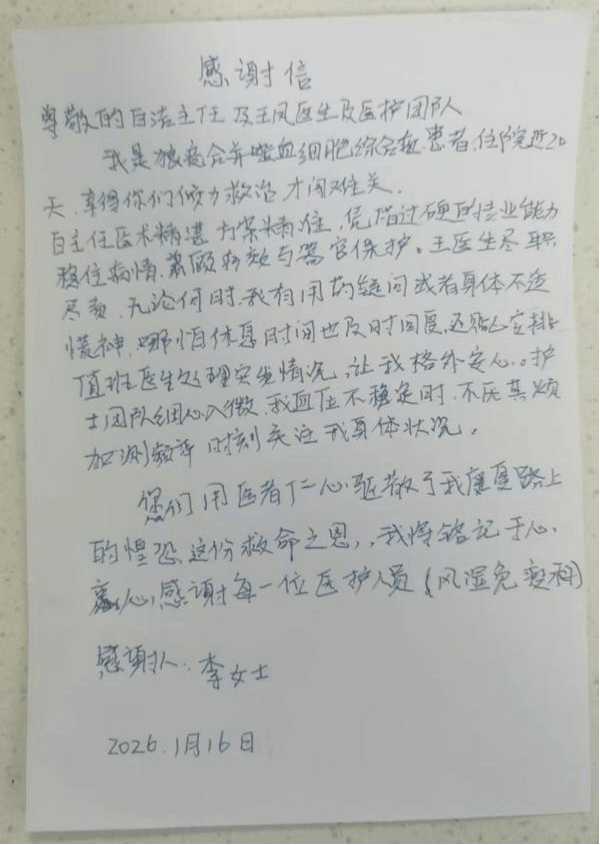 感谢信
尊敬的白洁主任及王凤医生及医护团队
我是狼疮合并噬血细胞综合征患者,住院近20
天,幸得你们倾力救治才闯难关.
白主任医术精湛方案精准,凭借过硬的专业能力
稳住病情,兼顾疗效与器官保护。王医生尽职
尽责,无论何时,我有用药疑问或者身体不适
慌神,哪怕休息时间也及时回复,还贴心安排
值班医生处理突发情况,让我格外安心。护
士团队细心入微,我血压不稳定时,不厌其烦
加测频率 时刻关注我身体状况。
您们用医者仁心驱散了我康复路上
的惶恐,这份救命之恩,,我将铭记于心.
衷心感谢每一位医护人员(风湿免疫科)
感谢人:李女士
2026.1月16日